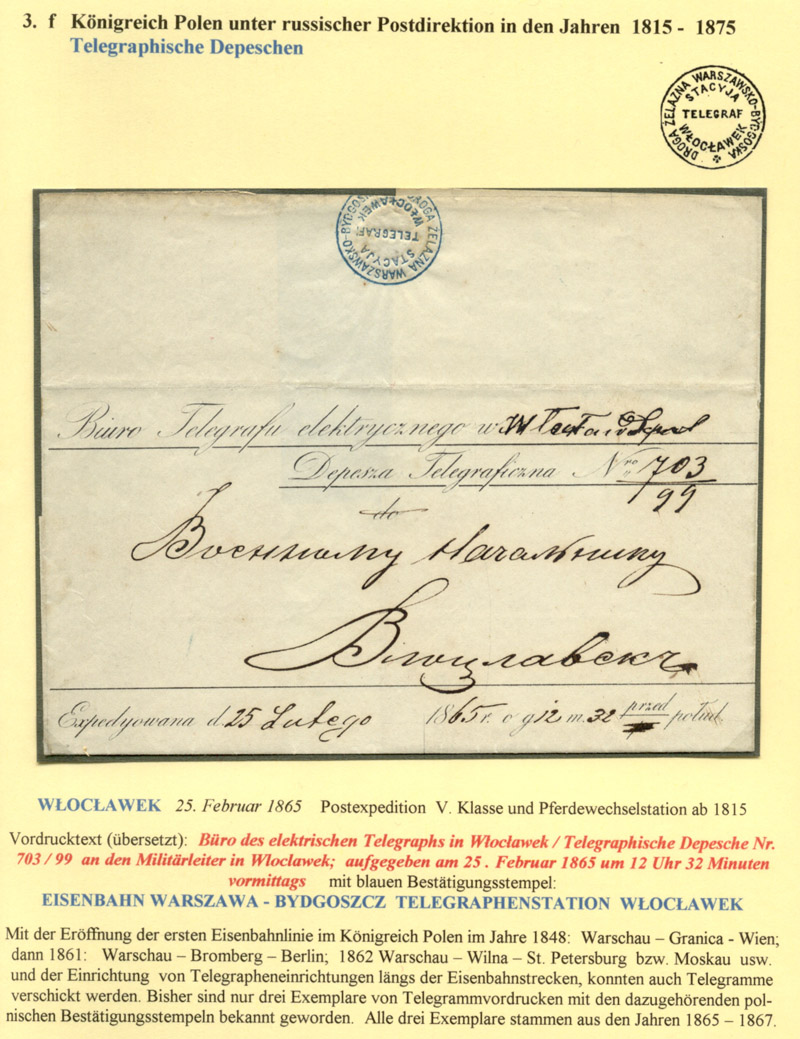 3. f Königreich Polen unter russischer Postdirektion in den Jahren 1815 - 1875
Telegraphische Depeschen
DROGA ŻELAZNA WARSZAWSKO-BYDGOSKA
STACYJA
TELEGRAF
WŁOCŁAWEK
DROGA ŻELAZNA WARSZAWSKO-BYDGOS
STACYJA
TELEGRAF
WŁOCŁAWEK
Biuro Telegrafu elektrycznego w
Depesza Telegraficzna Nro 703
99
do
Военному Началнику
Влоцлавскъ
Expedyowana d. 25 Lutego 1865 r. o g 12 m. 32 przed połud
WŁOCŁAWEK 25. Februar 1865 Postexpedition V. Klasse und Pferdewechselstation ab 1815
Vordrucktext (übersetzt): Büro des elektrischen Telegraphs in Włocławek / Telegraphische Depesche Nr.
703 / 99 an den Militärleiter in Wloclawek; aufgegeben am 25 . Februar 1865 um 12 Uhr 32 Minuten
vormittags mit blauen Bestätigungsstempel:
EISENBAHN WARSZAWA - BYDGOSZCZ TELEGRAPHENSTATION WŁOCŁAWEK
Mit der Eröffnung der ersten Eisenbahnlinie im Königreich Polen im Jahre 1848: Warschau – Granica - Wien;
dann 1861: Warschau – Bromberg – Berlin; 1862 Warschau – Wilna – St. Petersburg bzw. Moskau usw.
und der Einrichtung von Telegrapheneinrichtungen längs der Eisenbahnstrecken, konnten auch Telegramme
verschickt werden. Bisher sind nur drei Exemplare von Telegrammvordrucken mit den dazugehörenden pol-
nischen Bestätigungsstempeln bekannt geworden. Alle drei Exemplare stammen aus den Jahren 1865 – 1867.